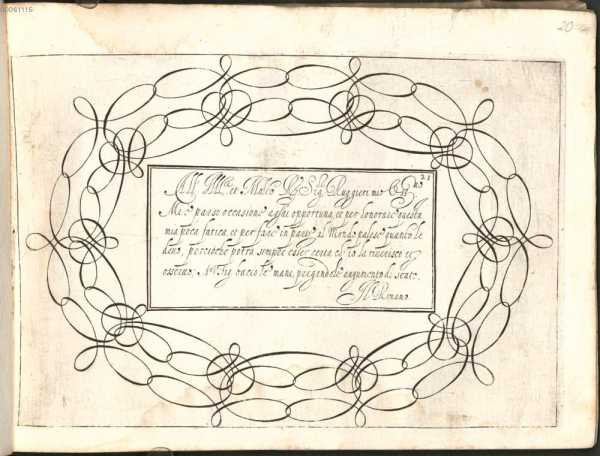 00061115
20
21
All' Ill.re et Molto R.do Sig.r Ruggieri mio
Mi è parso occasione assai opportuna, et per honorare questa
mia poca fatica, et per fare in parte al Mondo palese quanto le
devo, percioche potrà sempre esser certa ch' io la riverisco et
osservo; bacio le mani, pregandole augumento di stato.
Il Romano.